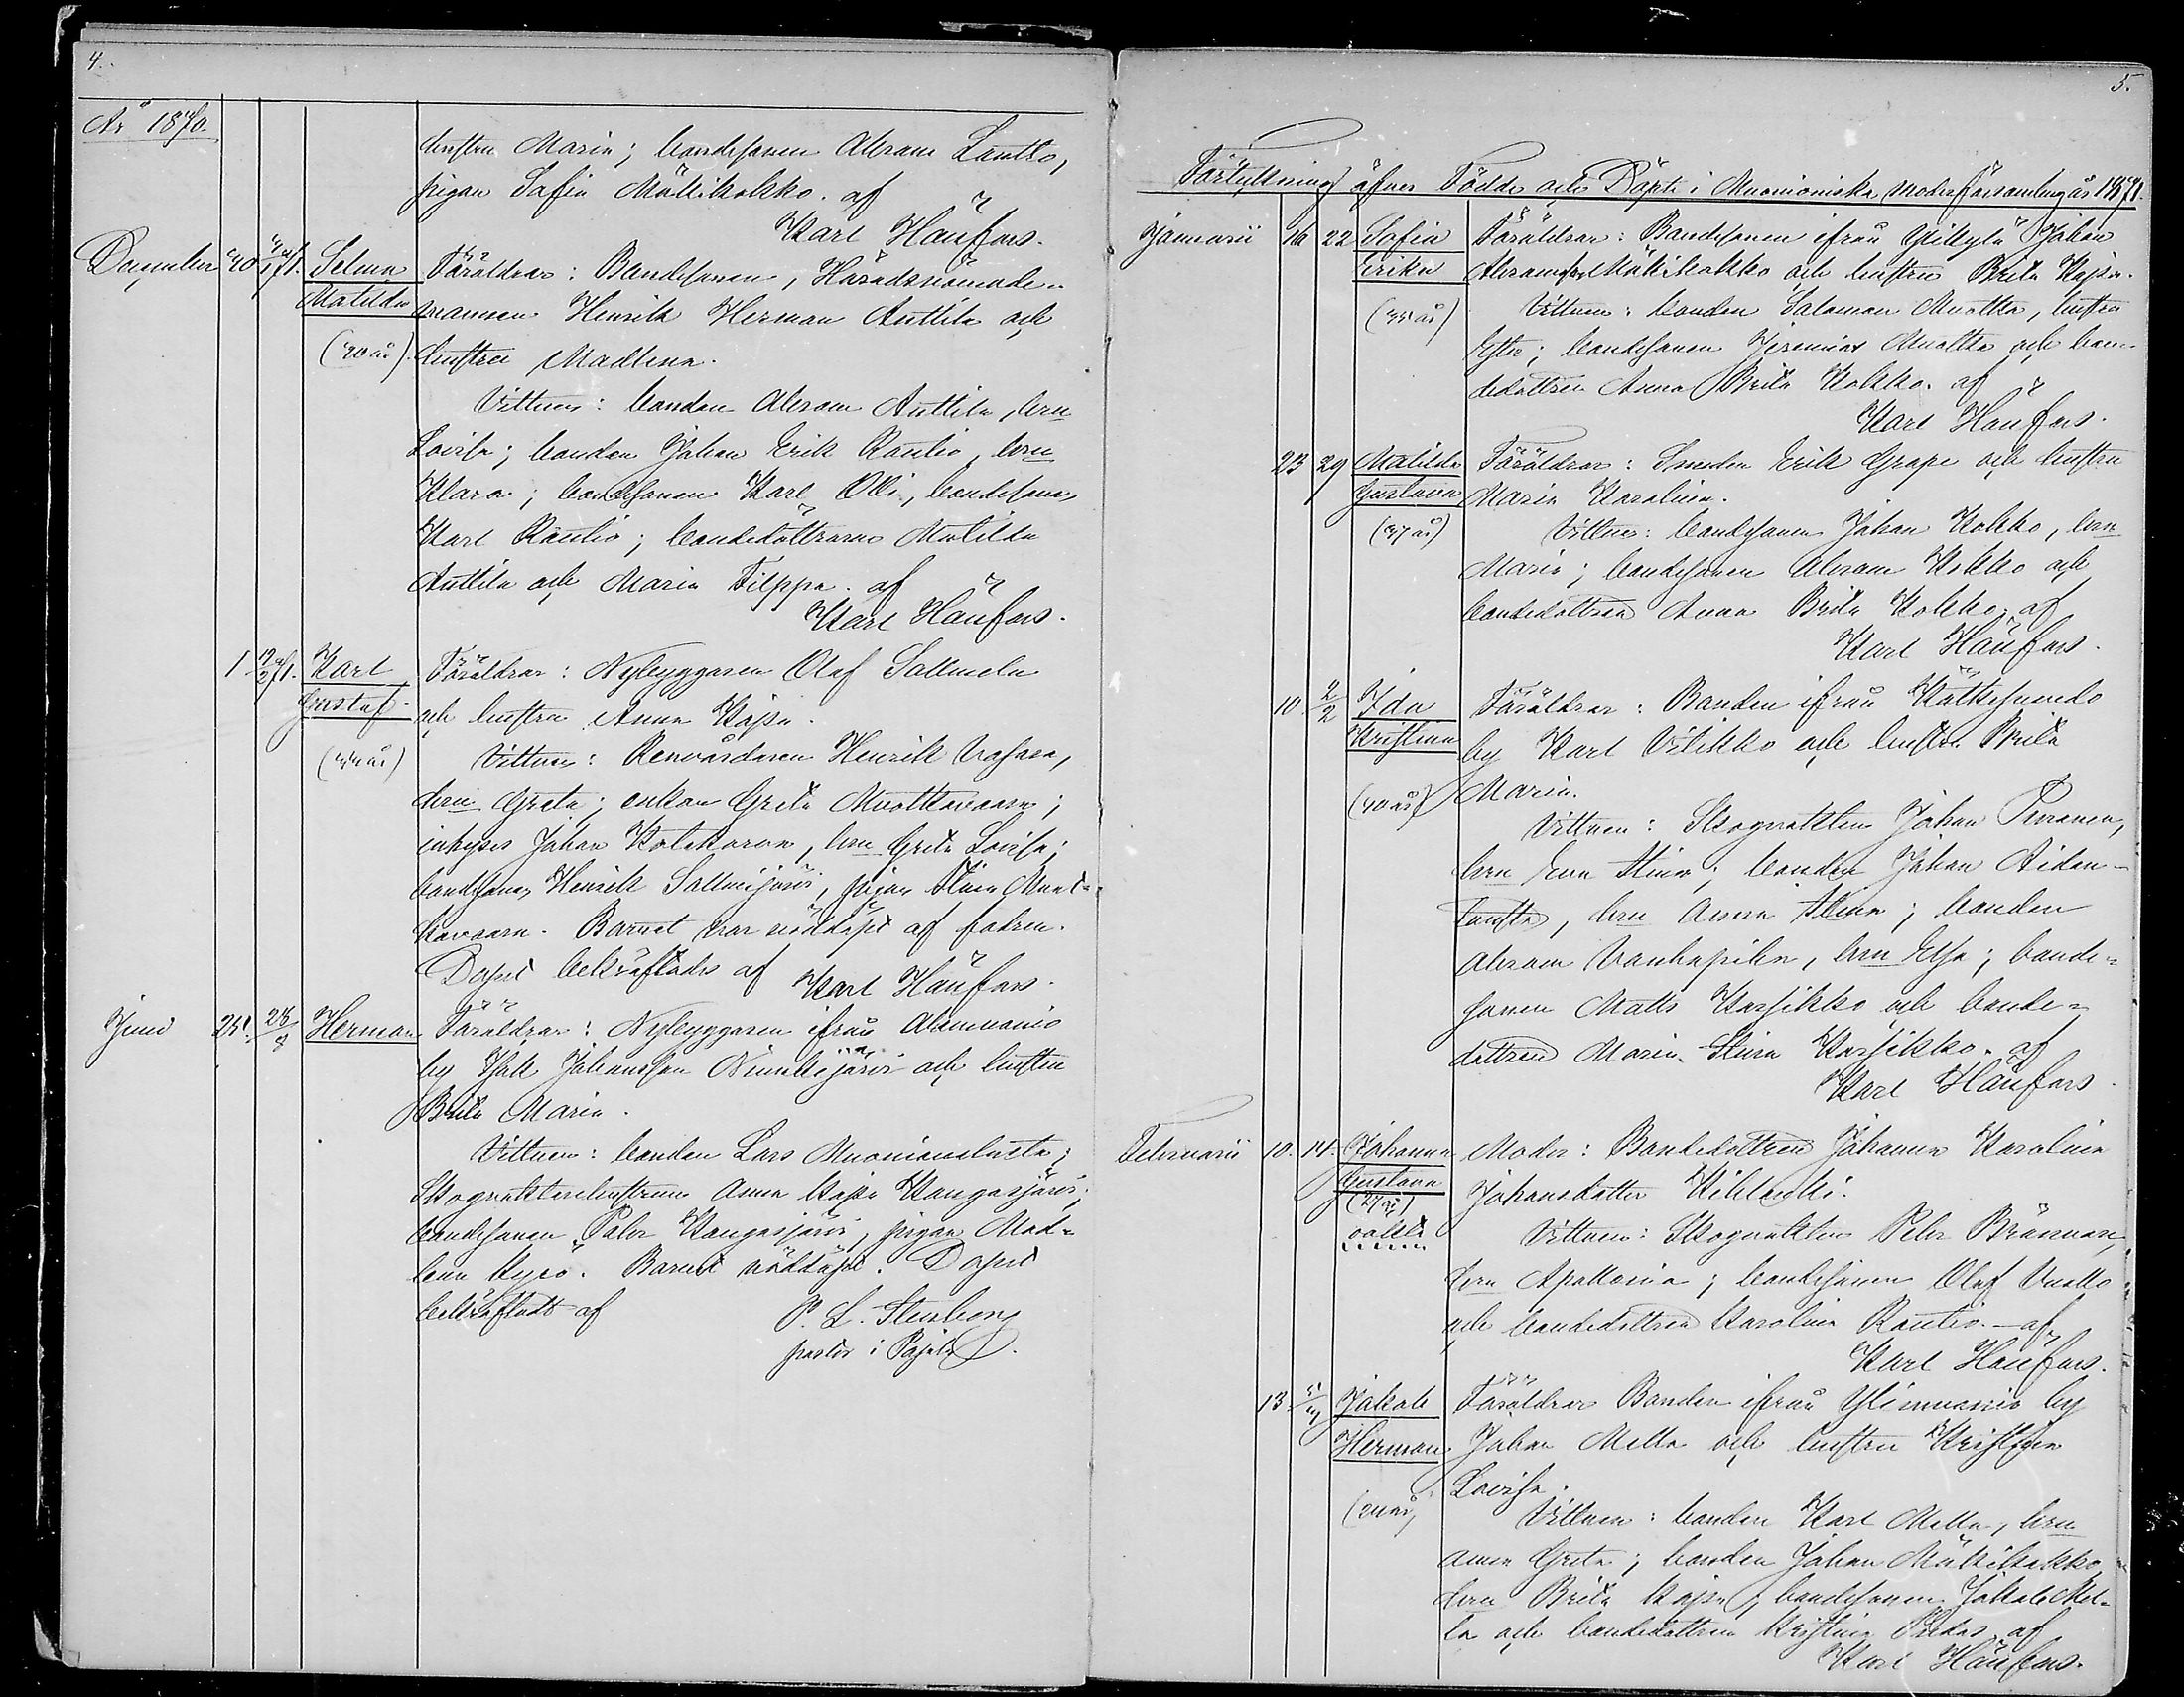 4.
År 1870.
hustru Maria; bondesonen Abram Lantto,
pigan Sofia Mäkikokko. af
Karl Hänfors.
December 20 1/1 71. Selma Föräldrar: Bondesonen, Häradsnämnde-
Matilda mannen Henrik Herman Anttila och
(20 år). hustrun Madlena.
Vittnen: bonden Abram Anttila, hru
Lovisa; bonden Johan Erik Rautio, hru
Klara; bondesonen Karl Olli, bondeson
Karl Rautio; bondedöttrarne Matilda
Anttila och Maria Filppa. af
Karl Hänfors.
1 71. Karl Föräldrar: Nybyggaren Olof Salmela
Gustaf och hustrun Anna Kajsa.
(44 år) Vittnen: Renvårdaren Henrik
hru Greta; enkan Greta Muotkavaara;
inhyses Johan, hru Greta Lovisa;
bondeson Henrik Salmijärvi, pigan Stina Muot-
kavaara. Barnet var nöddöpt af fadren.
Dopet bekräftades af Karl Hänfors.
Juni 25. 28/8 Herman Föräldrar: Nybyggaren ifrån Alamuonio
by Isak Johansson Niemijärvi och hustrun
Brita Maria.
Vittnen: bonden Lars Muonionalusta;
Skogvaktarehustrun Anna Kajsa Kangasjärvi;
bondesonen Petter Kangasjärvi, pigan Mad-
lena Kyrö. Barnet nöddöpt. Dopet
bekräftadt af P. L. Stenborg
pastor i Pajala.
5.
Förteckning öfver Födde och Döpte i Muonioniska Moderförsamling år 1871.
Januarii 16 22 Sofia Föräldrar: Bondesonen ifrån Ylikylä Johan
Erika Abramsson Mäkikokko och hustrun Brita Kajsa.
(35 år) Vittnen: bonden Salomon Muotka, hustrun
Ester; bondesonen Jeremias Muotka och bon-
dedottren Anna Brita Kokko. af
Karl Hänfors.
23 29 Matilda Föräldrar: Smeden Erik Grape och hustrun
Gustava Maria Karolina.
(37 år) Vittnen: bondesonen Johan Kokko, hru
Maria; bondesonen Abram Kokko och
bondedottren Anna Brita Kokko. af
Karl Hänfors.
10. 2/2 Ida Föräldrar: Bonden ifrån Kätkesuando
Kristina by Karl Vilikko och hustru Brita
(40 år) Maria.
Vittnen: Skogvaktten Johan
hru Eva Stina; bonden Johan Aidan-
hru Anna Stina; bonden
Abram Vanhapiha, hru Elsa; bonde-
sonen Matts Karsikko och bonde-
dottren Maria Stina Karsikko. af
Karl Hänfors.
Februarii 10. 14. Johanna Moder: Bondedottren Johanna Karolina
Gustava Johansdotter Kihlanki.
(27 år) Vittnen: Skogvaktten Peter Brännman,
oäkta hru Apollonia; bondesonen Olof Vuollo
och bondedottren Karolina Rautio. — af
Karl Hänfors.
13. Jakob Föräldrar Bonden ifrån Ylimuonio by
Herman Johan Mella och hustrun Kristina
Lovisa.
Vittnen: bonden Karl Mella, hru
Anna Greta; bonden Johan Mäkikokko,
hru Brita Kajsa; bondesonen Jakob Mel-
la och bondedottren Kristina af
Karl Hänfors.